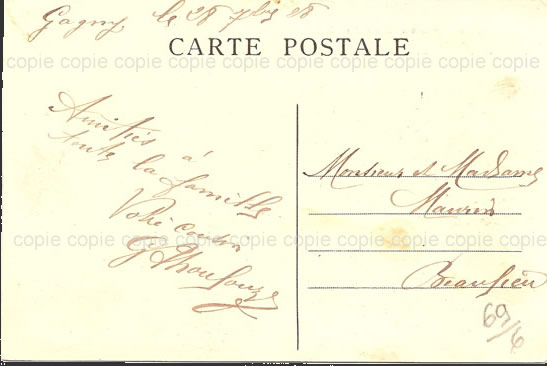 Gagny, le 28 7bre 28
CARTE POSTALE
copie copie copie copie copie copie copie copie copie
Amitiés à
toute la famille
Votre cousin
Monsieur et Madame
copie copie copie copie copie copie copie copie copie
Beaulieu
69/6